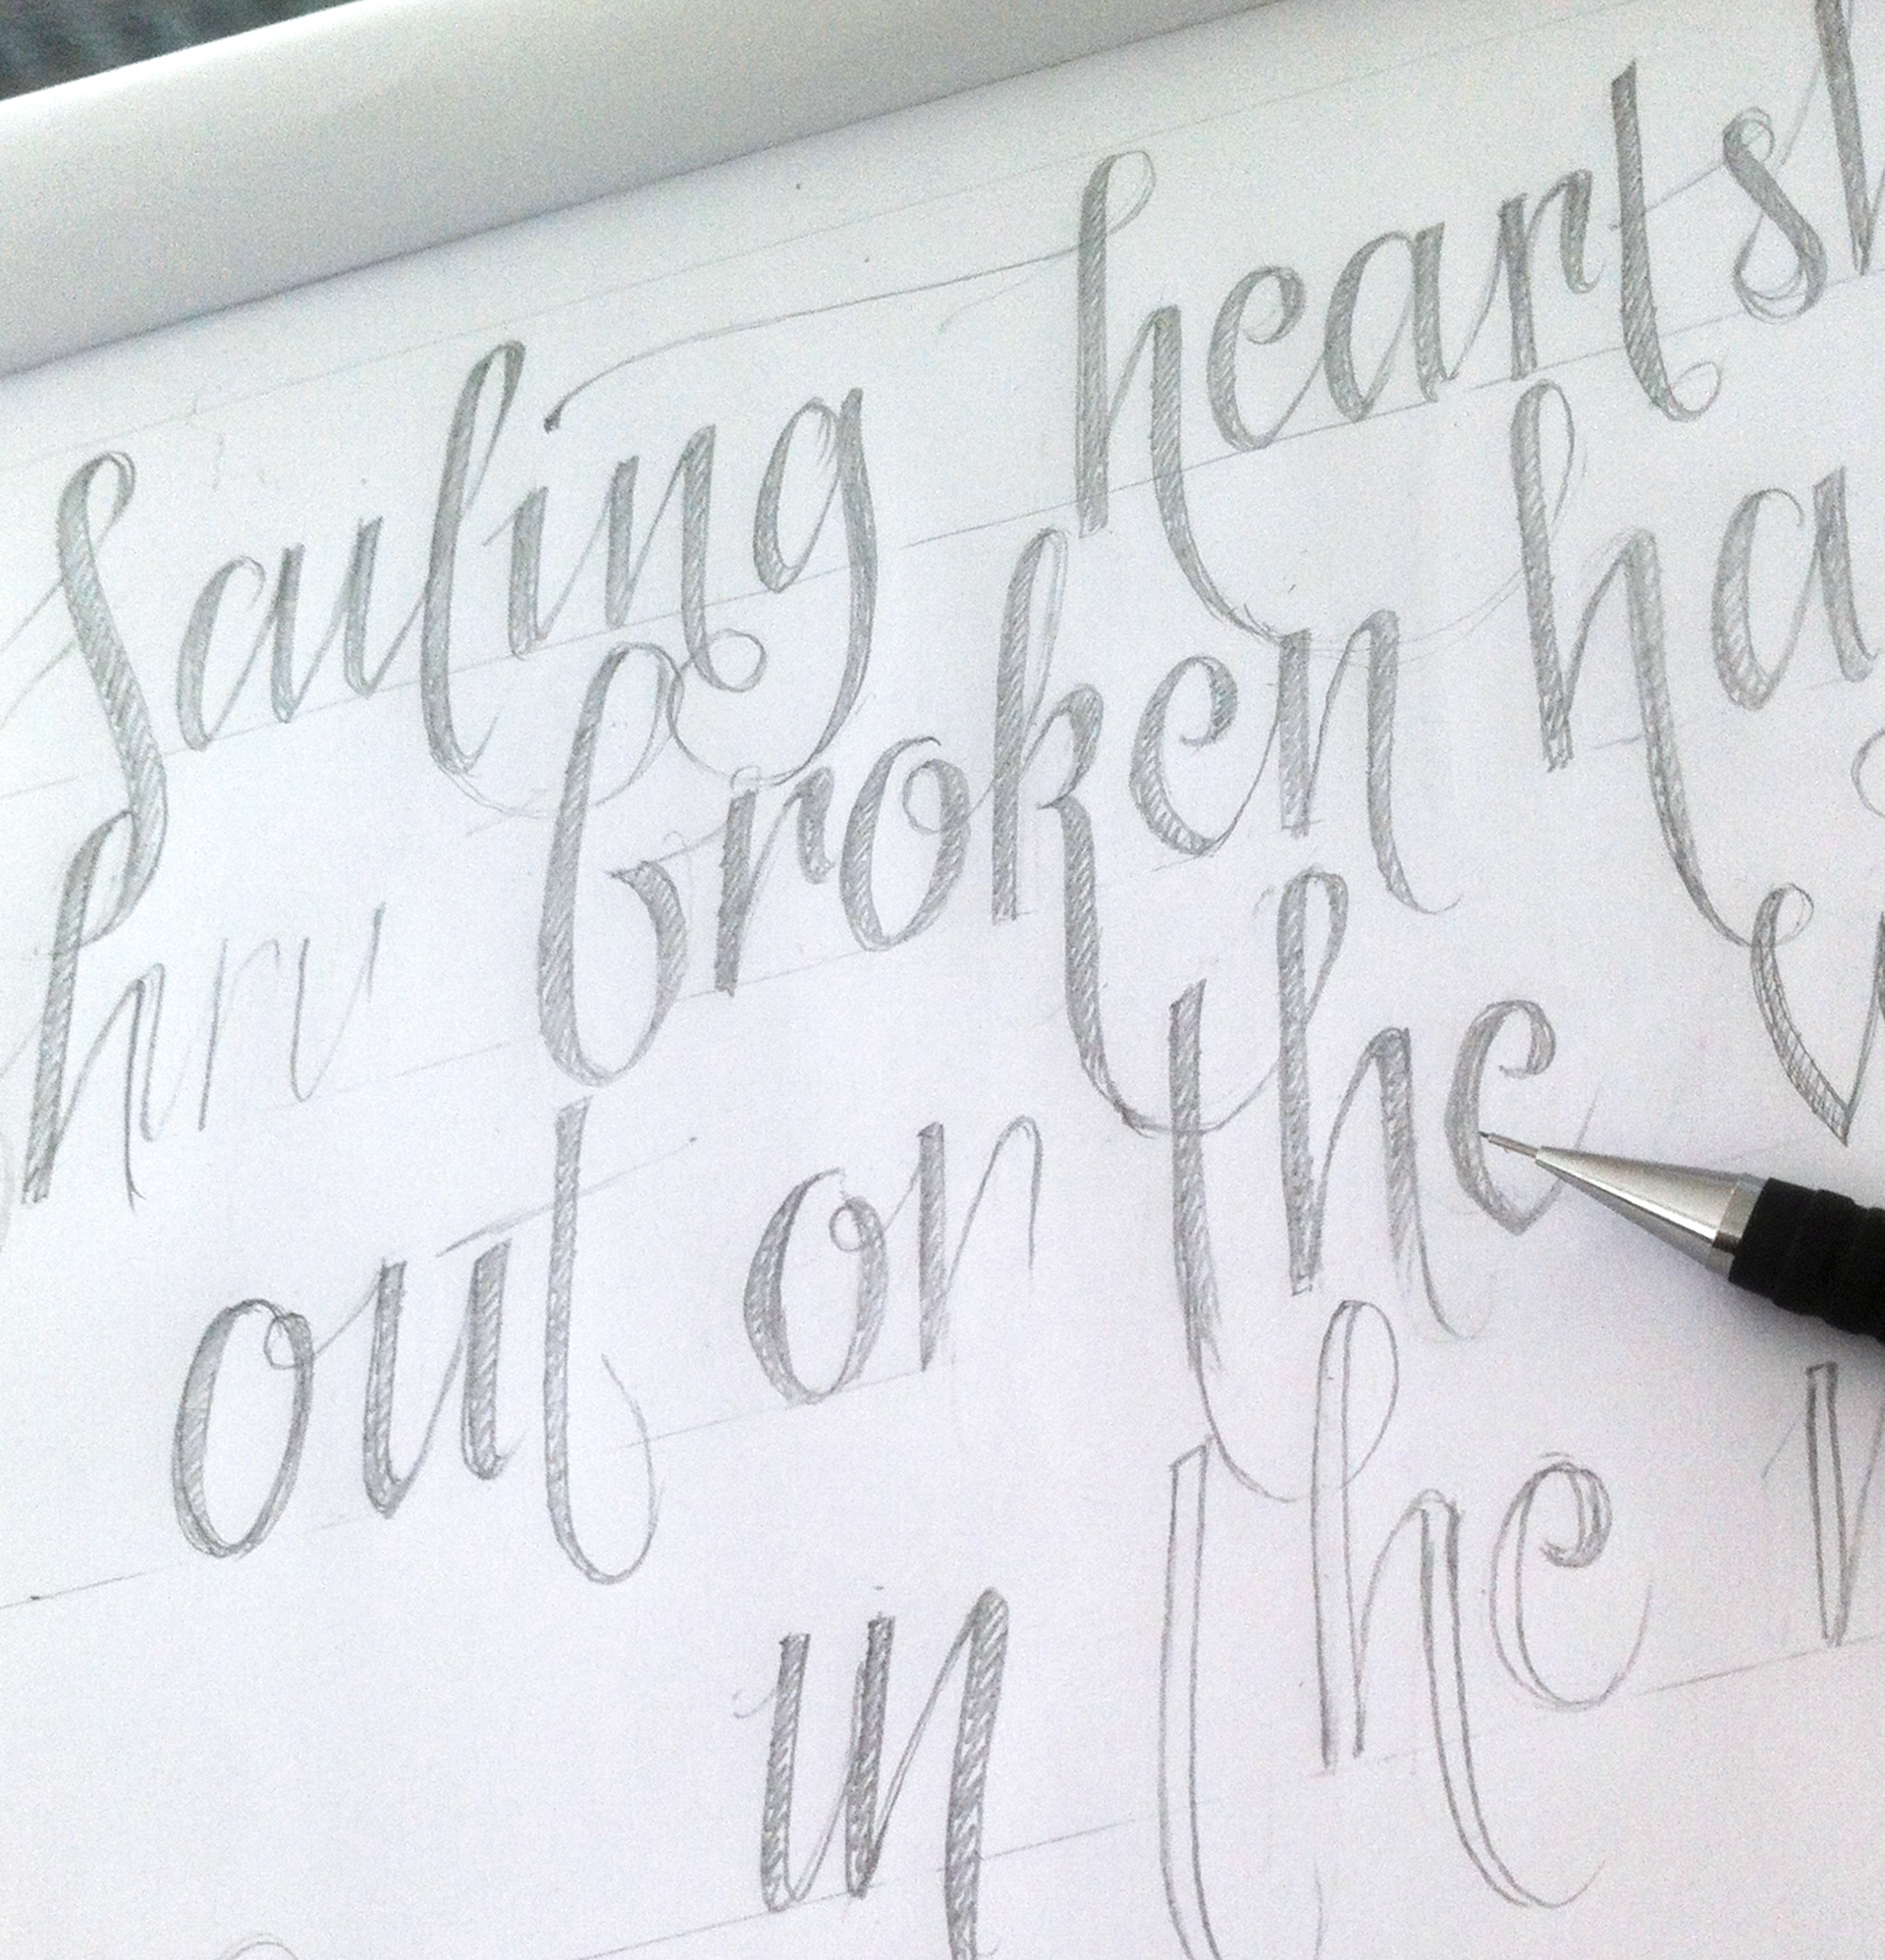 Sailing heartsh
hru broken ha
out on the
in the